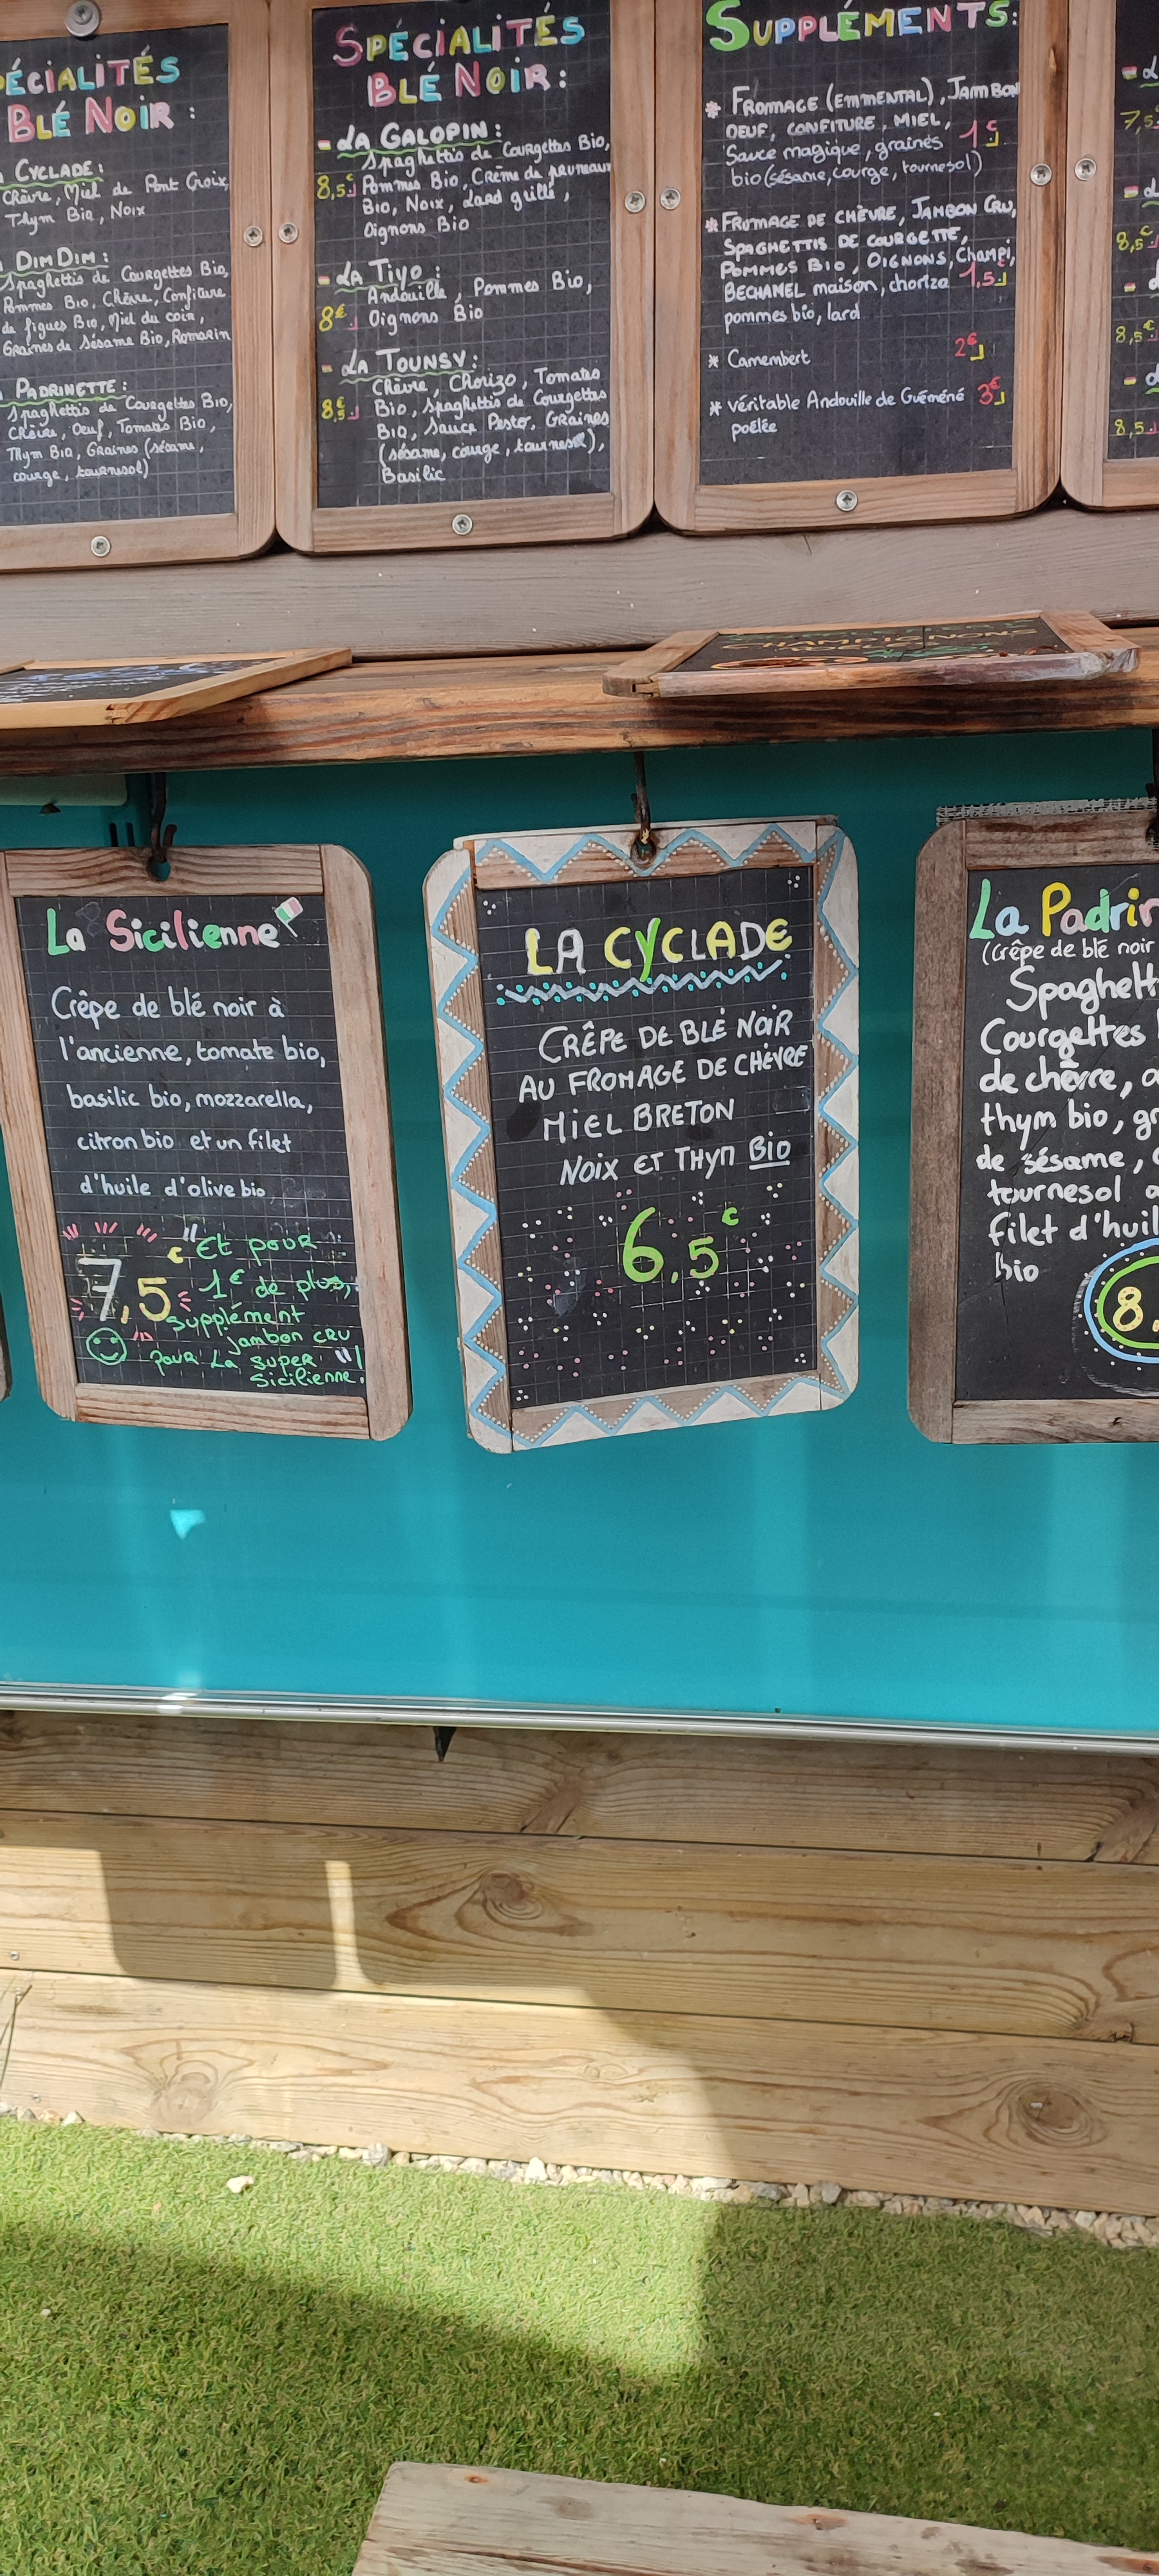 ÉCIALITÉS
BLÉ NOIR :
CYCLADE :
Chèvre, Miel de Pont Croix,
Thym Bio, Noix
DIMDIM :
Spaghettis de Courgettes Bio,
Pommes Bio, Chèvre, Confiture
de figues Bio, Miel du coin,
Graines de Sésame Bio, Romarin
PADRINETTE :
Spaghettis de Courgettes Bio,
Chèvre, Oeuf, Tomates Bio,
Thym Bio, Graines (sésame,
courge, tournesol)
SPÉCIALITÉS
BLÉ NOIR :
- LA GALOPIN :
Spaghettis de Courgettes Bio,
8,5€ Pommes Bio, Crème de pruneaux
Bio, Noix, Lard grillé,
Oignons Bio
- LA TIYO :
Andouille, Pommes Bio,
8€ Oignons Bio
- LA TOUNSY :
Chèvre, Chorizo, Tomates
8,5€ Bio, Spaghettis de Courgettes
Bio, Sauce Pesto, Graines
(sésame, courge, tournesol),
Basilic
SUPPLÉMENTS :
* FROMAGE (EMMENTAL), JAMBON
OEUF, CONFITURE, MIEL,
Sauce magique, graines 1€
bio (sésame, courge, tournesol)
* FROMAGE DE CHÈVRE, JAMBON CRU,
SPAGHETTIS DE COURGETTE,
POMMES BIO, OIGNONS, Champi,
BECHAMEL maison, chorizo 1,5
pommes bio, lard
* Camembert 2€
* véritable Andouille de Guéméné 3€
poêlée
7,5
8,5€
8,5€
8,5
CHAMPIGNONS
La Sicilienne
Crêpe de blé noir à
l'ancienne, tomate bio,
basilic bio, mozzarella,
citron bio et un filet
d'huile d'olive bio
7,5€
"Et pour
1€ de plus,
supplément
jambon cru
pour La super
Sicilienne."!
LA CYCLADE
CRÊPE DE BLÉ NOIR
AU FROMAGE DE CHÈVRE
MIEL BRETON
NOIX ET THYM BIO
6,5€
La Padrin
(Crêpe de blé noir
Spaghett
Courgettes
de chèvre,
thym bio, gr
de sésame,
tournesol
filet d'huil
bio
8,